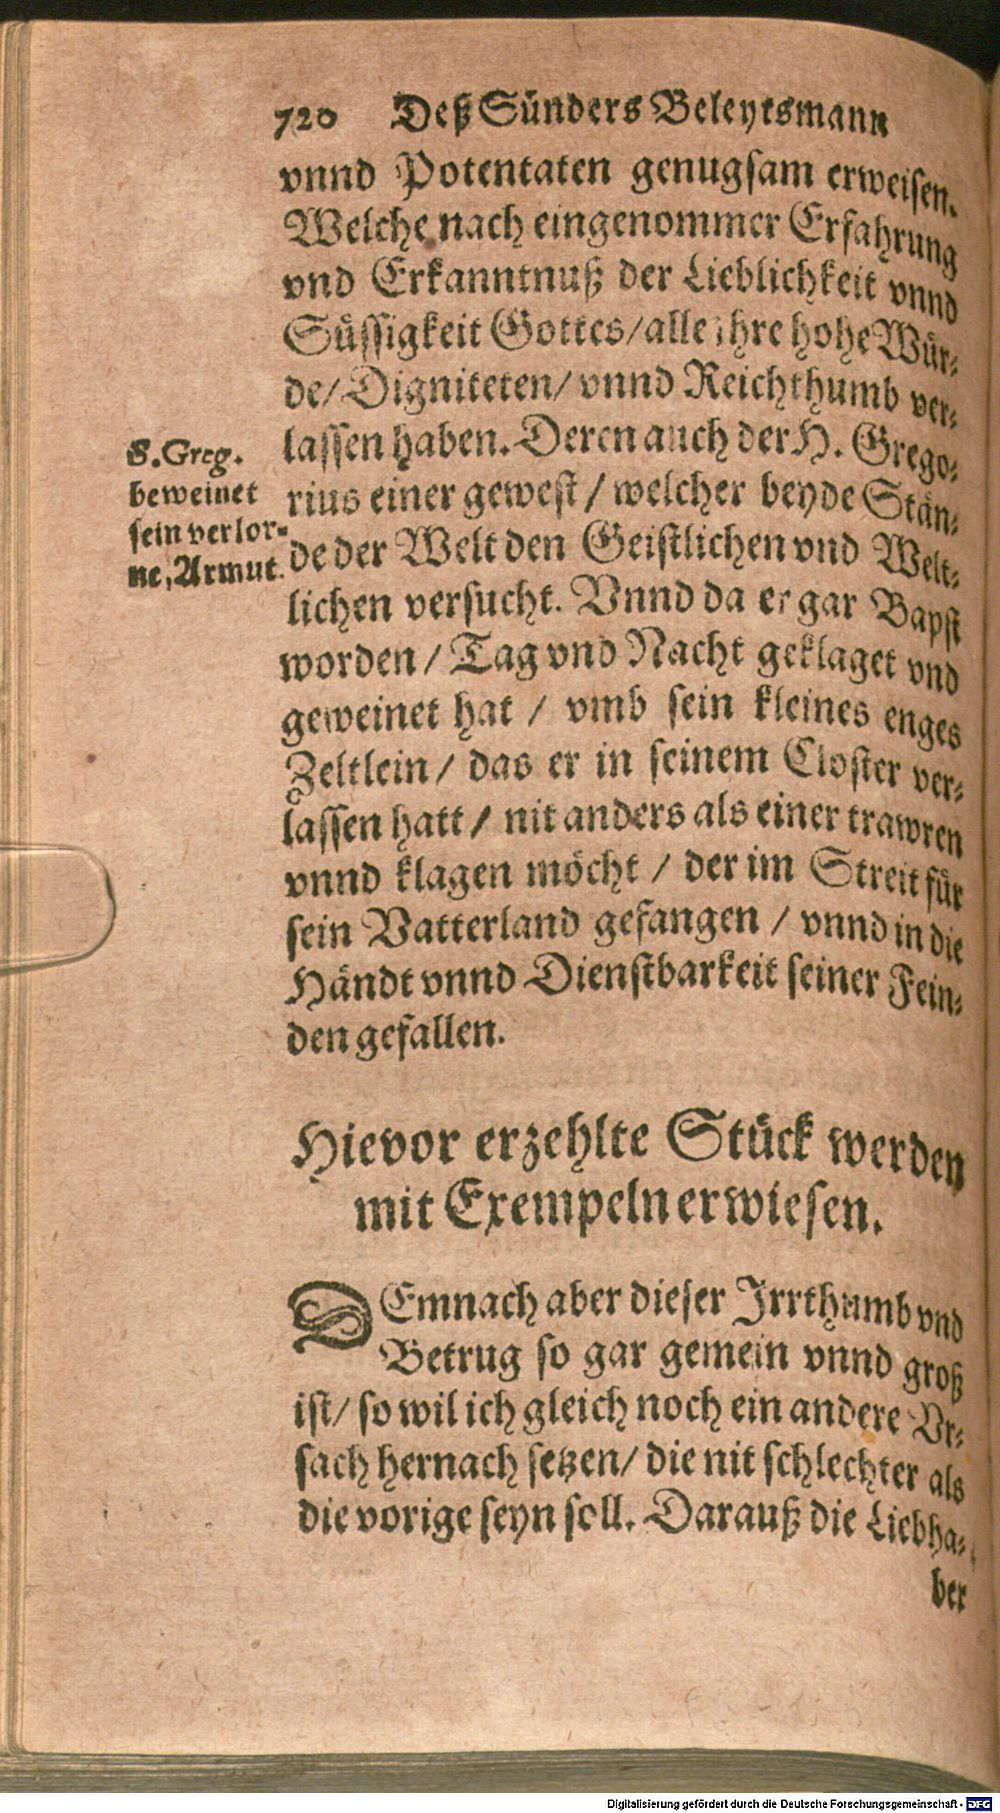 720 Deß Sünders Beleytsmann
vnnd Potentaten genugsam erweisen.
Welche nach eingenommer Erfahrung
vnd Erkanntnuß der Lieblichkeit vnnd
Süssigkeit Gottes/alle ihre hohe Wür-
de/ Digniteten/ vnnd Reichthumb ver-
lassen haben. Deren auch der H. Grego-
rius einer gewest / welcher beyde Stän-
de der Welt den Geistlichen vnd Welt-
lichen versucht. Vnnd da er gar Bapst
worden / Tag vnd Nacht geklaget vnd
geweinet hat / vmb sein kleines enges
Zeltlein/ das er in seinem Closter ver-
lassen hatt / nit anders als einer trawren
vnnd klagen möcht / der im Streit für
sein Vatterland gefangen / vnnd in die
Händt vnnd Dienstbarkeit seiner Fein-
den gefallen.
S. Greg.
beweinet
sein verlor-
ne, Armut.
Hievor erzehlte Stück werden
mit Exempeln erwiesen.
DEmnach aber dieser Irrthumb vnd
Betrug so gar gemein vnnd groß
ist/ so wil ich gleich noch ein andere Vr-
sach hernach setzen/ die nit schlechter als
die vorige seyn soll. Darauß die Liebha-
ber
Digitalisierung gefördert durch die Deutsche Forschungsgemeinschaft - DFG